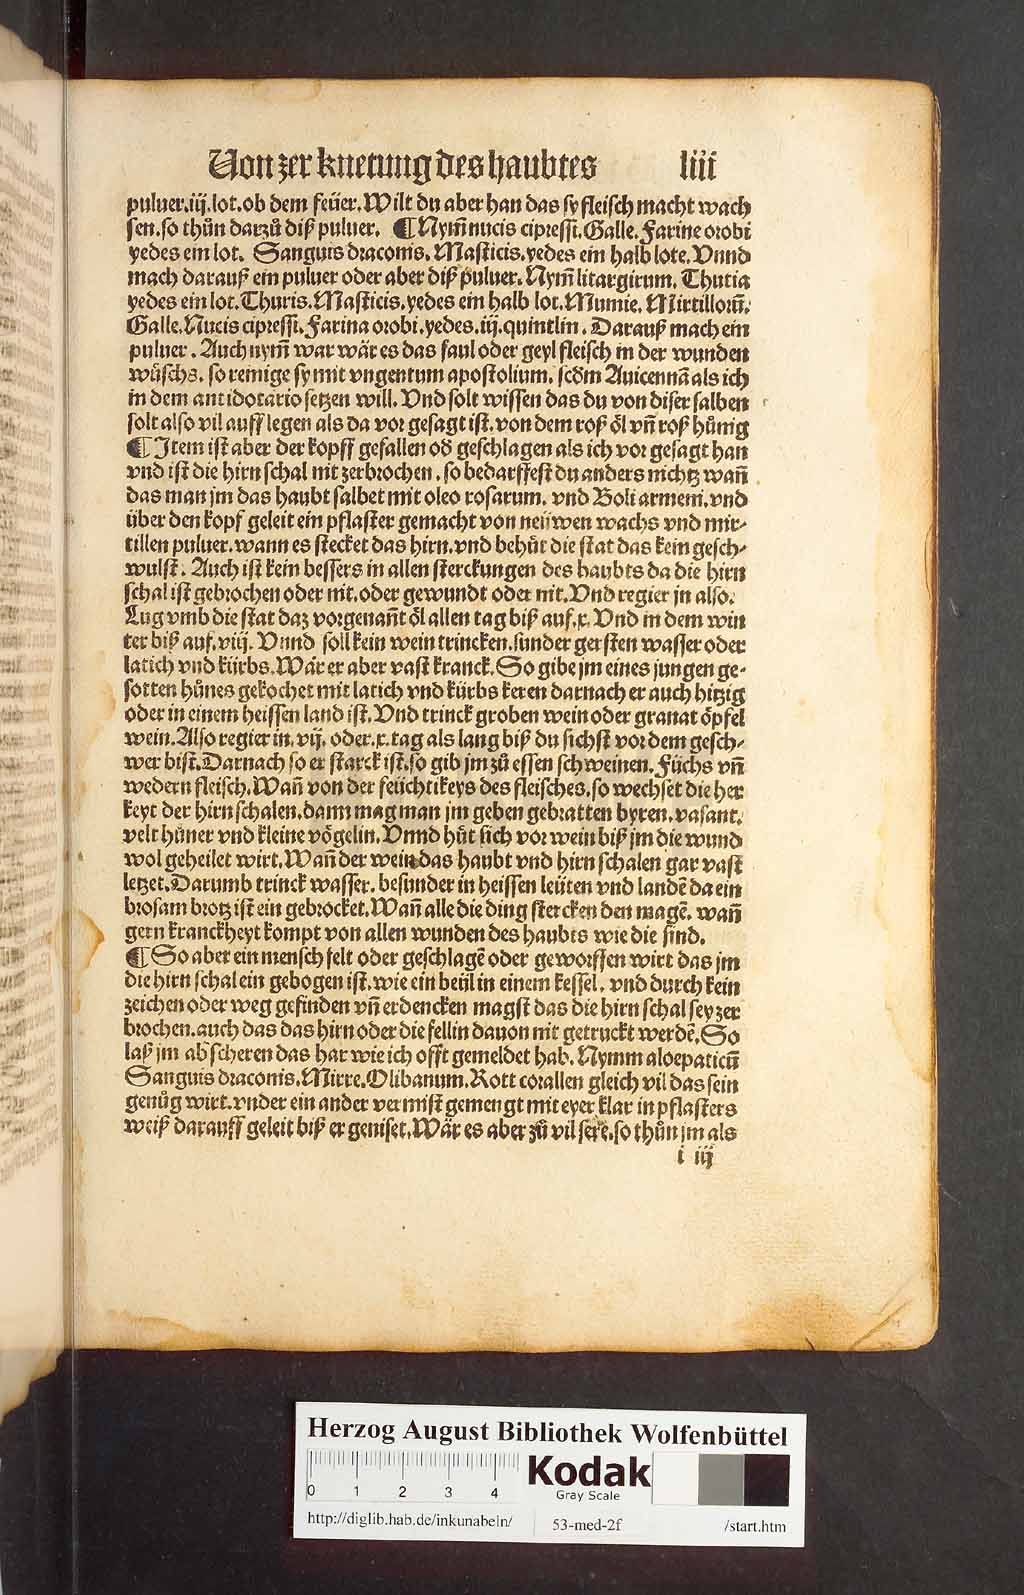 Von zer knetung des haubtes liii
puluer.iij.lot.ob dem feüer.Wilt du aber han das sy fleisch macht wach
sen.so thůn darzů diß puluer. ¶Nym̄ nucis cipressi.Galle.Farine orobi
yedes ein lot. Sanguis draconis.Masticis.yedes ein halb lote.Vnnd
mach darauß ein puluer oder aber diß puluer.Nym̄ litargirum.Thutia
yedes ein lot.Thuris.Masticis.yedes ein halb lot.Mumie.Mirtillorū.
Galle.Nucis cipressi.Farina orobi.yedes.iij.quintlin.Darauß mach ein
puluer.Auch nym̄ war wär es das faul oder geyl fleisch in der wunden
wůschs.so reinige sy mit vngentum apostolium.scd̄m Auicennā als ich
in dem antidotario setzen will.Vnd solt wissen das du von diser salben
solt also vil auff legen als da vor gesagt ist.von dem roß öl vn̄ roß hůnig
¶Item ist aber der kopff gefallen od̄ geschlagen als ich vor gesagt han
vnd ist die hirn schal nit zerbrochen.so bedarffest du anders nichtz wan̄
das man jm das haubt salbet mit oleo rosarum.vnd Boli armeni.vnd
über den kopf geleit ein pflaster gemacht von neüwen wachs vnd mir-
tillen puluer.wann es stecket das hirn.vnd behůt die stat das kein gesch-
wulst.Auch ist kein bessers in allen sterckungen des haubts da die hirn
schal ist gebrochen oder nit.oder gewundt oder nit.Vnd regier jn also.
Lug vmb die stat daz vorgenan̄t öl allen tag biß auf.x.Vnd in dem win
ter biß auf.viij.Vnnd soll kein wein trincken.sunder gersten wasser oder
latich vnd kürbs.Wär er aber vast kranck.So gibe jm eines jungen ge-
sotten hůnes gekochet mit latich vnd kürbs keren darnach er auch hitzig
oder in einem heissen land ist.Vnd trinck groben wein oder granat öpfel
wein.Also regier in.vij.oder.x.tag als lang biß du sichst vor dem gesch-
wer bist.Darnach so er starck ist.so gib jm zů essen schweinen.Füchs vn̄
wedern fleisch.Wan̄ von der feüchtikeys des fleisches.so wechset die her
keyt der hirn schalen.dann mag man jm geben gebratten byren.vasant.
velt hůner vnd kleine vögelin.Vnnd hůt sich vor wein biß jm die wund
wol geheilet wirt.Wan̄ der wein das haubt vnd hirn schalen gar vast
letzet.Darumb trinck wasser.besunder in heissen leüten vnd landē da ein
brosam brotz ist ein gebrocket.Wan̄ alle die ding stercken den magē.wan̄
gern kranckheyt kompt von allen wunden des haubts wie die sind.
¶So aber ein mensch felt oder geschlagē oder geworffen wirt das jm
die hirn schal ein gebogen ist.wie ein beül in einem kessel.vnd durch kein
zeichen oder weg gefinden vn̄ erdencken magst das die hirn schal sey zer
brochen.auch das das hirn oder die fellin dauon nit getruckt werdē.So
laß jm ab scheren das har wie ich offt gemeldet hab.Nymm aloepaticū
Sanguis draconis.Mirre.Olibanum.Rott corallen gleich vil das sein
genůg wirt.vnder ein ander vermist gemengt mit eyer klar in pflasters
weiß darauff geleit biß er geniset.Wär es aber zů vil sere.so thůn jm als
i iij
Herzog August Bibliothek Wolfenbüttel
0 1 2 3 4
Kodak
Gray Scale
http://diglib.hab.de/inkunabeln/ 53-med-2f /start.htm